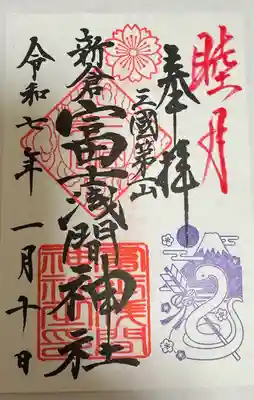 睦月
奉拝
三國第一山
新倉富士浅間神社
令和七年一月十日